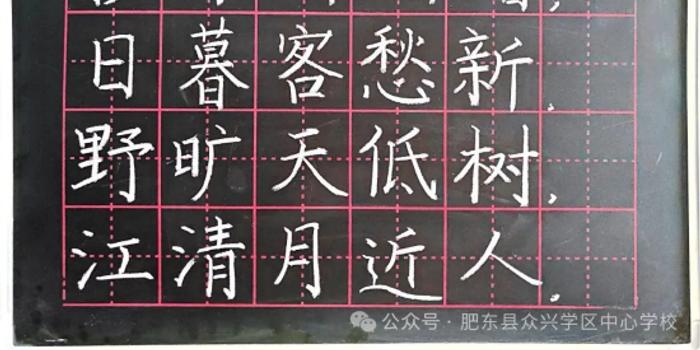 日暮客愁新.
野旷天低树,
江清月近人.
公众号·肥东县众兴学区中心学校